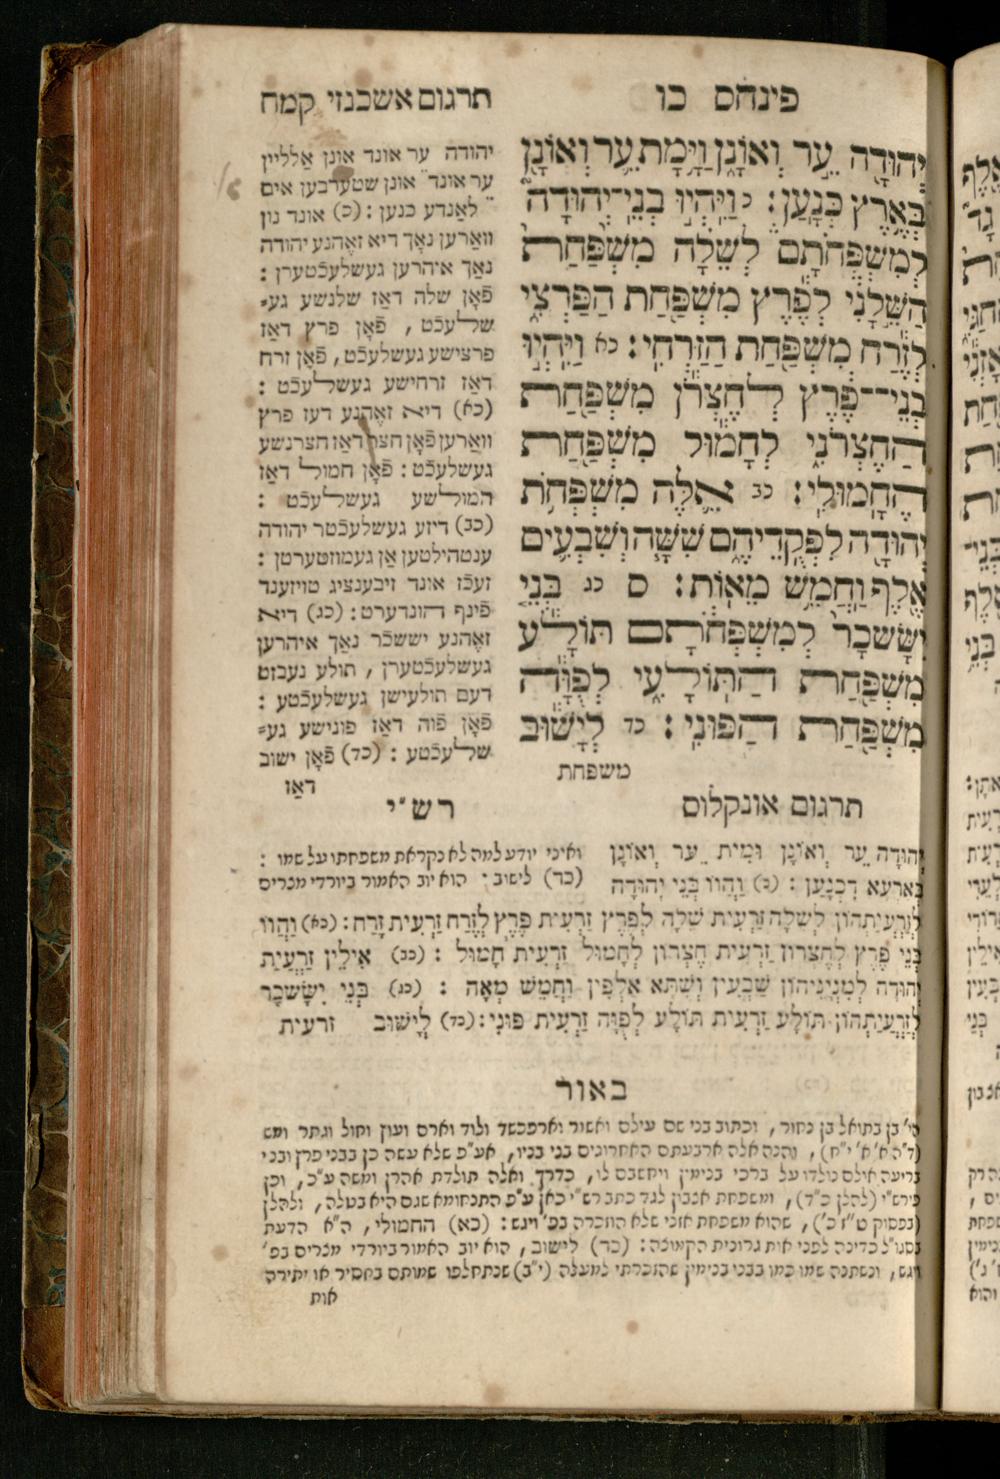 פינחס כו
תרגום אשכנזי קמח
יְהוּדָ֖ה עֵ֣ר וְאוֹנָ֑ן וַיָּ֥מָת עֵ֛ר וְאוֹנָ֖ן
בְּאֶ֥רֶץ כְּנָֽעַן׃ כ וַיִּֽהְי֣וּ בְנֵֽי־יְהוּדָה֮
לְמִשְׁפְּחֹתָם֒ לְשֵׁלָ֗ה מִשְׁפַּ֙חַת֙
הַשֵּׁ֣לָנִ֔י לְפֶ֕רֶץ מִשְׁפַּ֖חַת הַפַּרְצִ֑י
לְזֶ֕רַח מִשְׁפַּ֖חַת הַזַּרְחִֽי׃ כא וַיִּֽהְי֣וּ
בְנֵי־פֶ֔רֶץ לְחֶצְרֹ֕ן מִשְׁפַּ֖חַת
הַֽחֶצְרֹנִ֑י לְחָמ֕וּל מִשְׁפַּ֖חַת
הֶחָמוּלִֽי׃ כב אֵ֛לֶּה מִשְׁפְּחֹ֥ת
יְהוּדָ֖ה לִפְקֻדֵיהֶ֑ם שִׁשָּׁ֧ה וְשִׁבְעִ֛ים
אֶ֖לֶף וַחֲמֵ֥שׁ מֵאֽוֹת׃ ס כג בְּנֵ֤י
יִשָּׂשכָר֙ לְמִשְׁפְּחֹתָ֔ם תּוֹלָ֕ע
מִשְׁפַּ֖חַת הַתּֽוֹלָעִ֑י לְפֻוָ֕ה
מִשְׁפַּ֖חַת הַפּוּנִֽי׃ כד לְיָשׁ֕וּב
משפחת
יהודה ער אונד אונן אַלליין
ער אונד אונן שטערבען אים
לאַנדע כנען : (כ) אונד נון
וואַרען נאָך דיא זאֶהנע יהודה
נאַך איהרען געשלעכֿטערן :
פֿאָן שלה דאַז שלנשע גע=
שלעכֿט , פֿאָן פרץ דאַז
פרצישע געשלעכֿט, פֿאָן זרח
דאַז זרחישע געשלעכֿט :
(כא) דיא זאֶהנע דעז פרץ
וואַרען פֿאָן חצר דאַז חצרנשע
געשלעכֿט : פֿאָן חמול דאַז
המולשע געשלעכֿט :
(כב) דיזע געשלעכֿטר יהודה
ענטהילטען אַן געמוזטערטן :
זעכֿז אונד זיבענציג טויזענד
פֿינף הונדערט : (כג) דיא
זאֶהנע יששכר נאַך איהרען
געשלעכֿטערן , תולע נעבזט
דעם תולעישן געשלעכֿטע :
פֿאָן פֿוה דאַז פונישע גע=
שלעכֿטע : (כד) פֿאָן ישוב
דאַז
תרגום אונקלוס
יְהוּדָה עֵר וְאוֹנָן וּמִית עֵר וְאוֹנָן
בְּאַרְעָא דִכְנָעַן : (כ) וַהֲווֹ בְּנֵי יְהוּדָה
רש"י
ואיני יודע למה לא נקראת משפחתו על שמו :
(כד) לישוב · הוא יוב האמור ביורדי מצרים
לְזַרְעֲיָתְהוֹן לְשֵׁלָה זַרְעִית שֵׁלָה לְפֶרֶץ זַרְעִית פֶּרֶץ לְזֶרַח זַרְעִית זָרַח : (כא) וַהֲווֹ
בְּנֵי פֶרֶץ לְחֶצְרוֹן זַרְעִית חֶצְרוֹן לְחָמוּל זַרְעִית חָמוּל : (כב) אִילֵּין זַרְעֲיַת
יְהוּדָה לְמִנְיָנֵיהוֹן שַׁבְעִין וְשִׁתָּא אַלְפִין וַחֲמֵשׁ מְאָה : (כג) בְּנֵי יִשָּׂשכָר
לְזַרְעֲיָתְהוֹן תּוֹלָע זַרְעִית תּוֹלָע לְפֻוָּה זַרְעִית פּוּנִי : (כד) לְיָשׁוּב זרעית
באור
בן בתואל בן נחור, וכתוב בני שם עילם ואשור וארפכשד ולוד וארם ועוץ וחול וגתר ומש
(ד"ה א' א' י"ח), והנה אלה ארבעתם האחרונים בני בניו, אע"פ שלא עשה כן בבני פרץ ובני
בריעה אולם נולדו על ברכי בנימין ויחשבם לו, כדרך ואלה תולדת אהרן ומשה ע"כ, וכן
פירש"י (להלן כ"ד), ומשפחת אצבון לגד כתב רש"י כאן ע"פ התנחומא שגם היא בטלה, ולהלן
(בפסוק ט"ז כ'), שהוא משפחת אזני שלא הוזכרה בפ' ויגש : (כא) החמולי, ה"א הדעת
בסגו"ל כדינה לפני אות גרונית הקמוצה : (כד) לישוב, הוא יוב האמור ביורדי מצרים בפ'
ויגש, ונשתנה שמו כמו בבני בנימין שהזכרתי למעלה (י"ב) שנתחלפו שמותם בחסיר או יתירה
אות